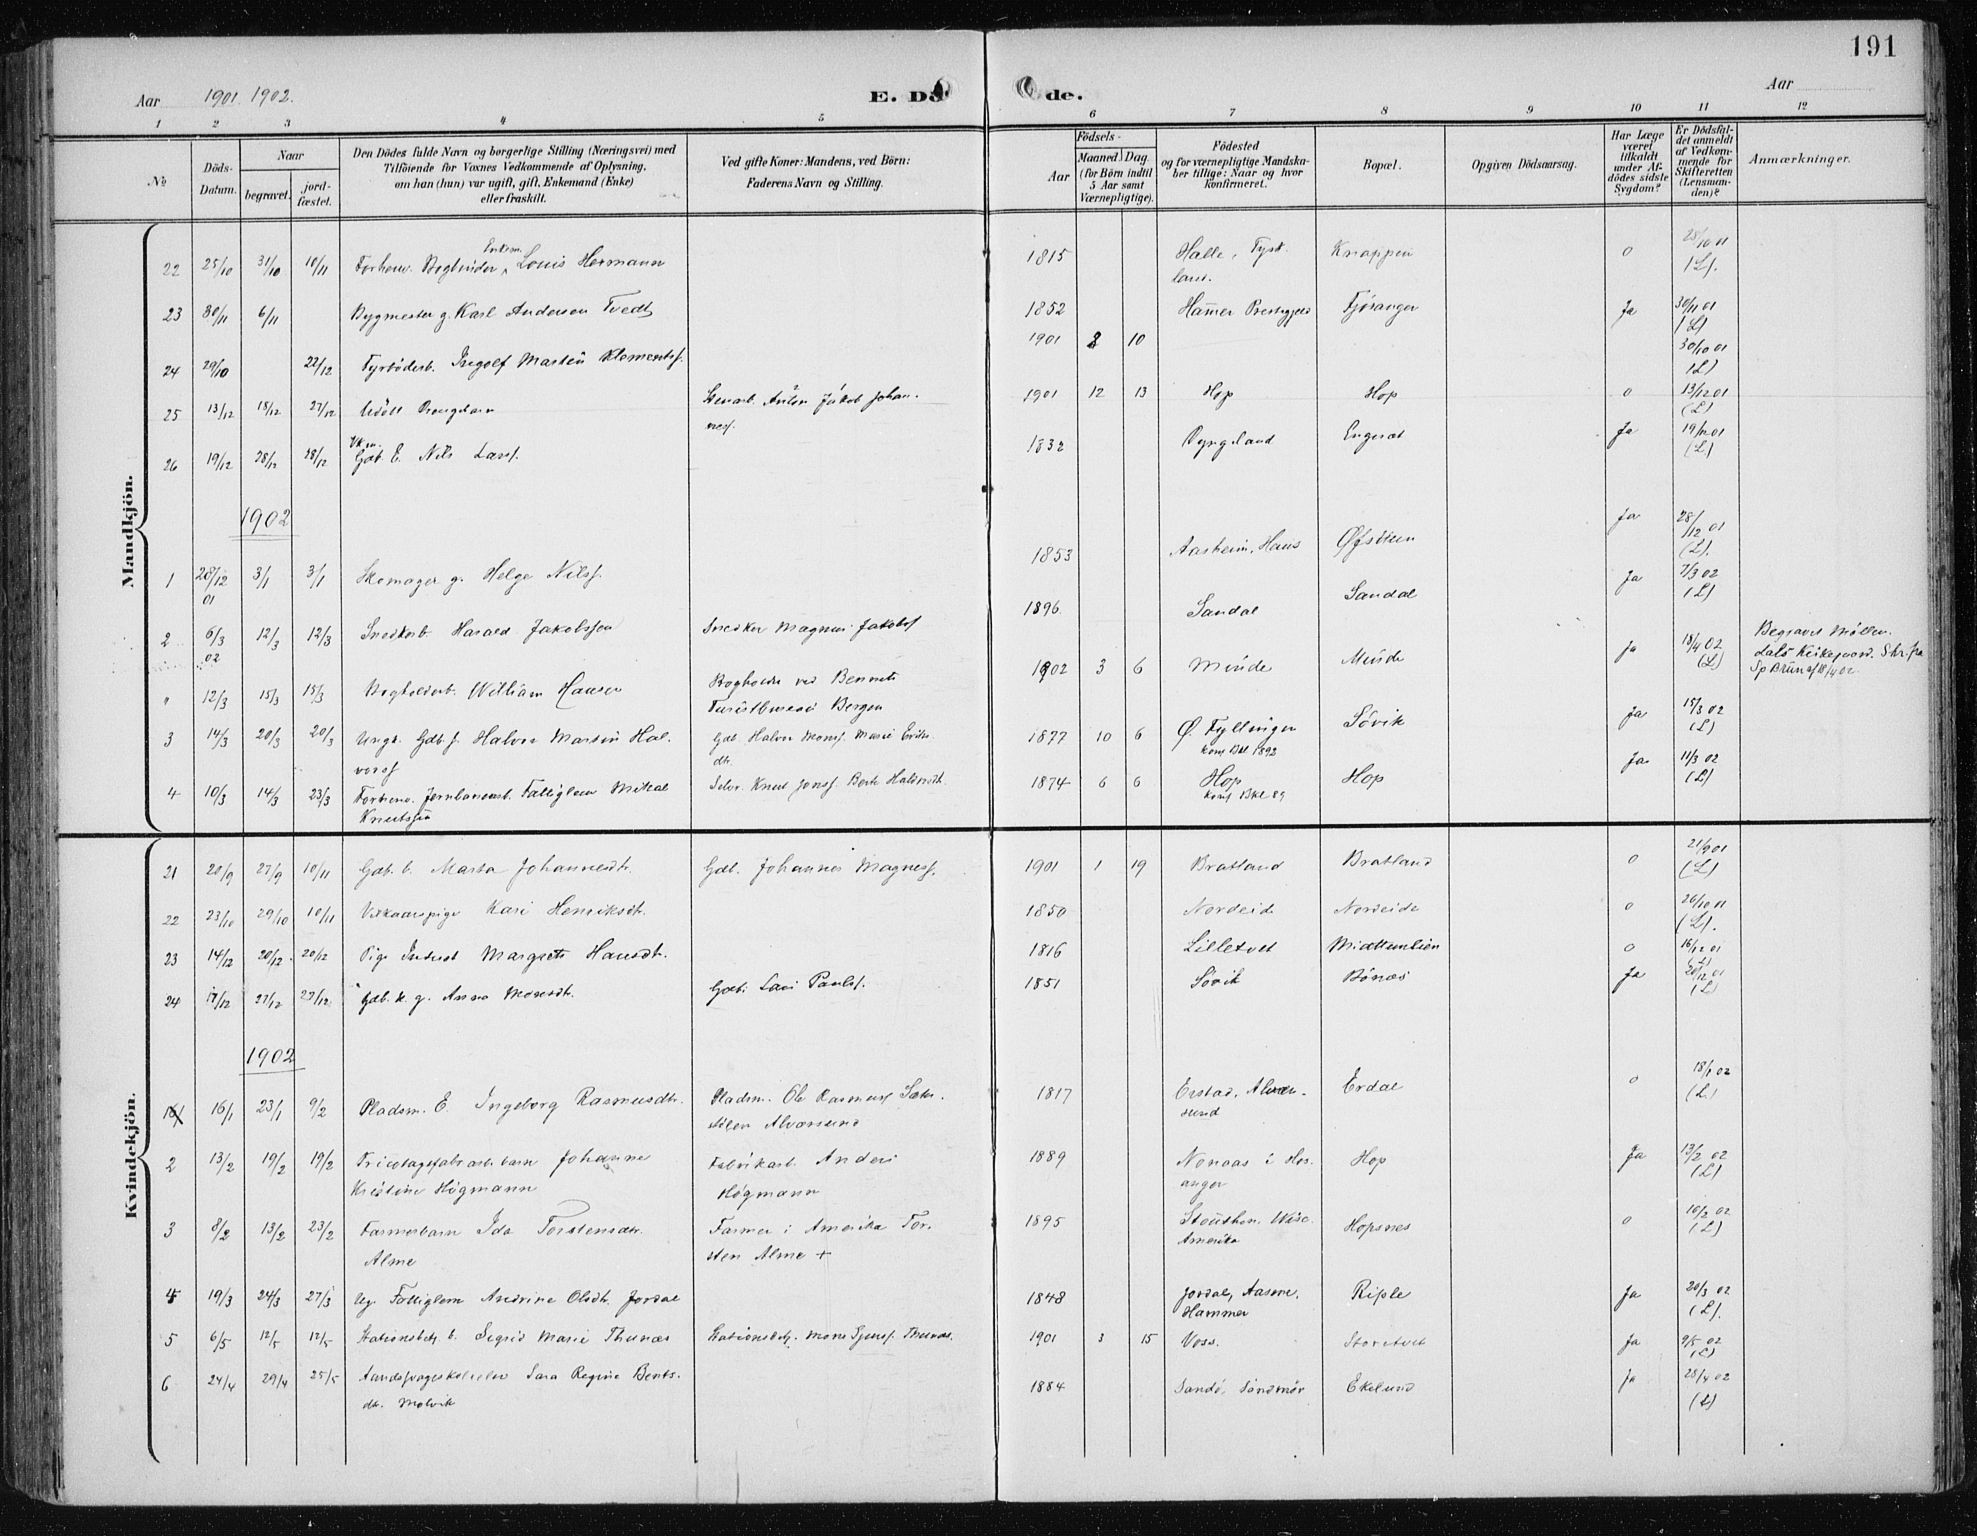 191
Aar 1901. 1902.
E. Dö
de.
Aar
1 2 3 4 5 6 7 8 9 10 11 12
No
Döds-
Datum.
Naar
begravet.
jord-
fæstet.
Den Dödes fulde Navn og borgerlige Stilling (Næringsvei) med
Tilföiende for Voxnes Vedkommende af Oplysning,
om han (hun) var ugift, gift, Enkemand (Enke)
eller fraskilt.
Ved gifte Koner: Mandens, ved Börn:
Faderens Navn og Stilling.
Födsels-
Aar
Maaned Dag
(for Börn indtil
5 Aar samt
Værnepligtige).
Födested
og for værnepligtige Mandska-
ber tillige: Naar og hvor
konfirmeret.
Bopæl.
Opgiven Dödsaarsag.
Har Læge
været
tilkaldt
under Af-
dödes sidste
Sygdom?
Er Dödsfal-
det anmeldt
af Vedkom-
mende for
Skifteretten
(Lensman-
den)?
Anmærkninger.
Mandkjön.
22 25/10 31/10 10/11 Forhenv. Bogbinder Enkem. Louis Hermann 1815 Halle, Tysk-
land. Knappen o 28/10 01
(L).
23 30/11 6/11 Bygmester g. Karl Andersen Tvedt 1852 Hamer Prestegjeld Fjøsanger Ja 30/11 01
(L)
24 29/10 22/12 Fyrbøderb. Ingolf Martin Klementss. 1901 8 10 30/10 01
(L)
25 13/12 18/12 27/12 Udöbt Drengebarn Stenarb. Anton Jakob Johan-
ness. 1901 12 13 Hop Hop o 13/12 01
(L)
26 19/12 28/12 28/12 Gdb. E. Nils Larss. 1832 Dyngeland Ja 19/12 01
(L)
1902
1 28/12
01 3/1 3/1 Skomager g. Helge Nilss. 1853 Aasheim, Haus Øfstiuen Ja 28/12 01
(L).
2 6/3
02 12/3 12/3 Snedkerb. Harald Jakobssen Snedker Magnus Jakobss 1896. Sandal Sandal Ja 7/3 02
(L)
" 12/3 15/3 15/3 Bogholderb. William Hansen Bogholder ved Bennets
Turistbureau Bergen 1902 3 6 Minde Minde Ja 18/4 02
(L) Begravet Møllen-
dals Kirkegaard. Skr. fra
Sp Bruun af 18/4 02.
3 14/3 20/3 20/3 Ungk. Gdb. s. Halvor Martin Hal-
vorss Gdb. Halvor Monss. Marie Eriks-
dtr. 1877 10 6 Ø. Tyllingen
konf Bkl 1892 Søvik Ja 15/3 02
(L)
4 10/3 14/3 23/3 Forhenv. Jernbanearb. Fattiglem Mikal
Knutssøn Selvr. Knut Jonss. Berte Haldorsdtr. 1874 6 6 Hop
konf Bkl 89 Hop Ja 11/3 02
(L)
Kvindekjön.
21 20/9 27/9 10/11 Gdb. b. Marta Johannesdtr. Gdb. Johannes Magness. 1901 1 19 Bratland Bratland o 21/9 01
(L)
22 23/10 29/10 10/11 Vilkaarspige Kari Henriksdtr. 1850 Nordeide Nordeide o 26/10 01
(L).
23 14/12 20/12 20/12 Pige Inderst Margrete Hansdtr. 1816 Lilletvet Midttunlien o 16/12 01
(L)
24 17/12 27/12 27/12 Gdb. k. g. Anna Monsdtr. Gdb. Lars Paulss. 1851 Søvik Bønæs Ja 20/12 01
(L)
1902
1 16/1 23/1 9/2 Pladsm. E. Ingeborg Rasmusdtr. Pladsm. Ole Rasmuss Sæter-
stølen Alversund 1817 Erstad, Alver-
sund Erdal o 18/1 02
(L)
2 13/2 19/2 19/2 Tricotagefabr.arb. barn Johanne
Kristine Högmann Fabrikarb. Anders
Högmann 1889 Nonaas i Hos-
anger Hop Ja 13/2 02
(L)
3 8/2 13/2 23/2 Farmerbarn Ida Torstensdtr.
Alme Farmer i Amerika Tor-
sten Alme + 1895 Stoughton, Wisc.
Amerika Hopsnes o 10/2 02
(L)
4 19/3 24/3 27/3 Ug. Fattiglem Andrine Olsdtr. Jordal 1848 Jordal, Aasene,
Hammer Riple Ja 20/3 02
(L).
5 6/5 12/5 12/5 Stationsbetj. b. Sigrid Marie Thunæs Stationsbetj. Mons Sjurss. Thunæs. 1901 3 15 Voss. Storetvet Ja 9/5 02
(L)
6 24/4 29/4 25/5 Aandssvageskoleelev Sara Regine Bents-
dtr. Molvik 1884 Sandø, Søndmør Ekelund Ja 28/4 02
(L)